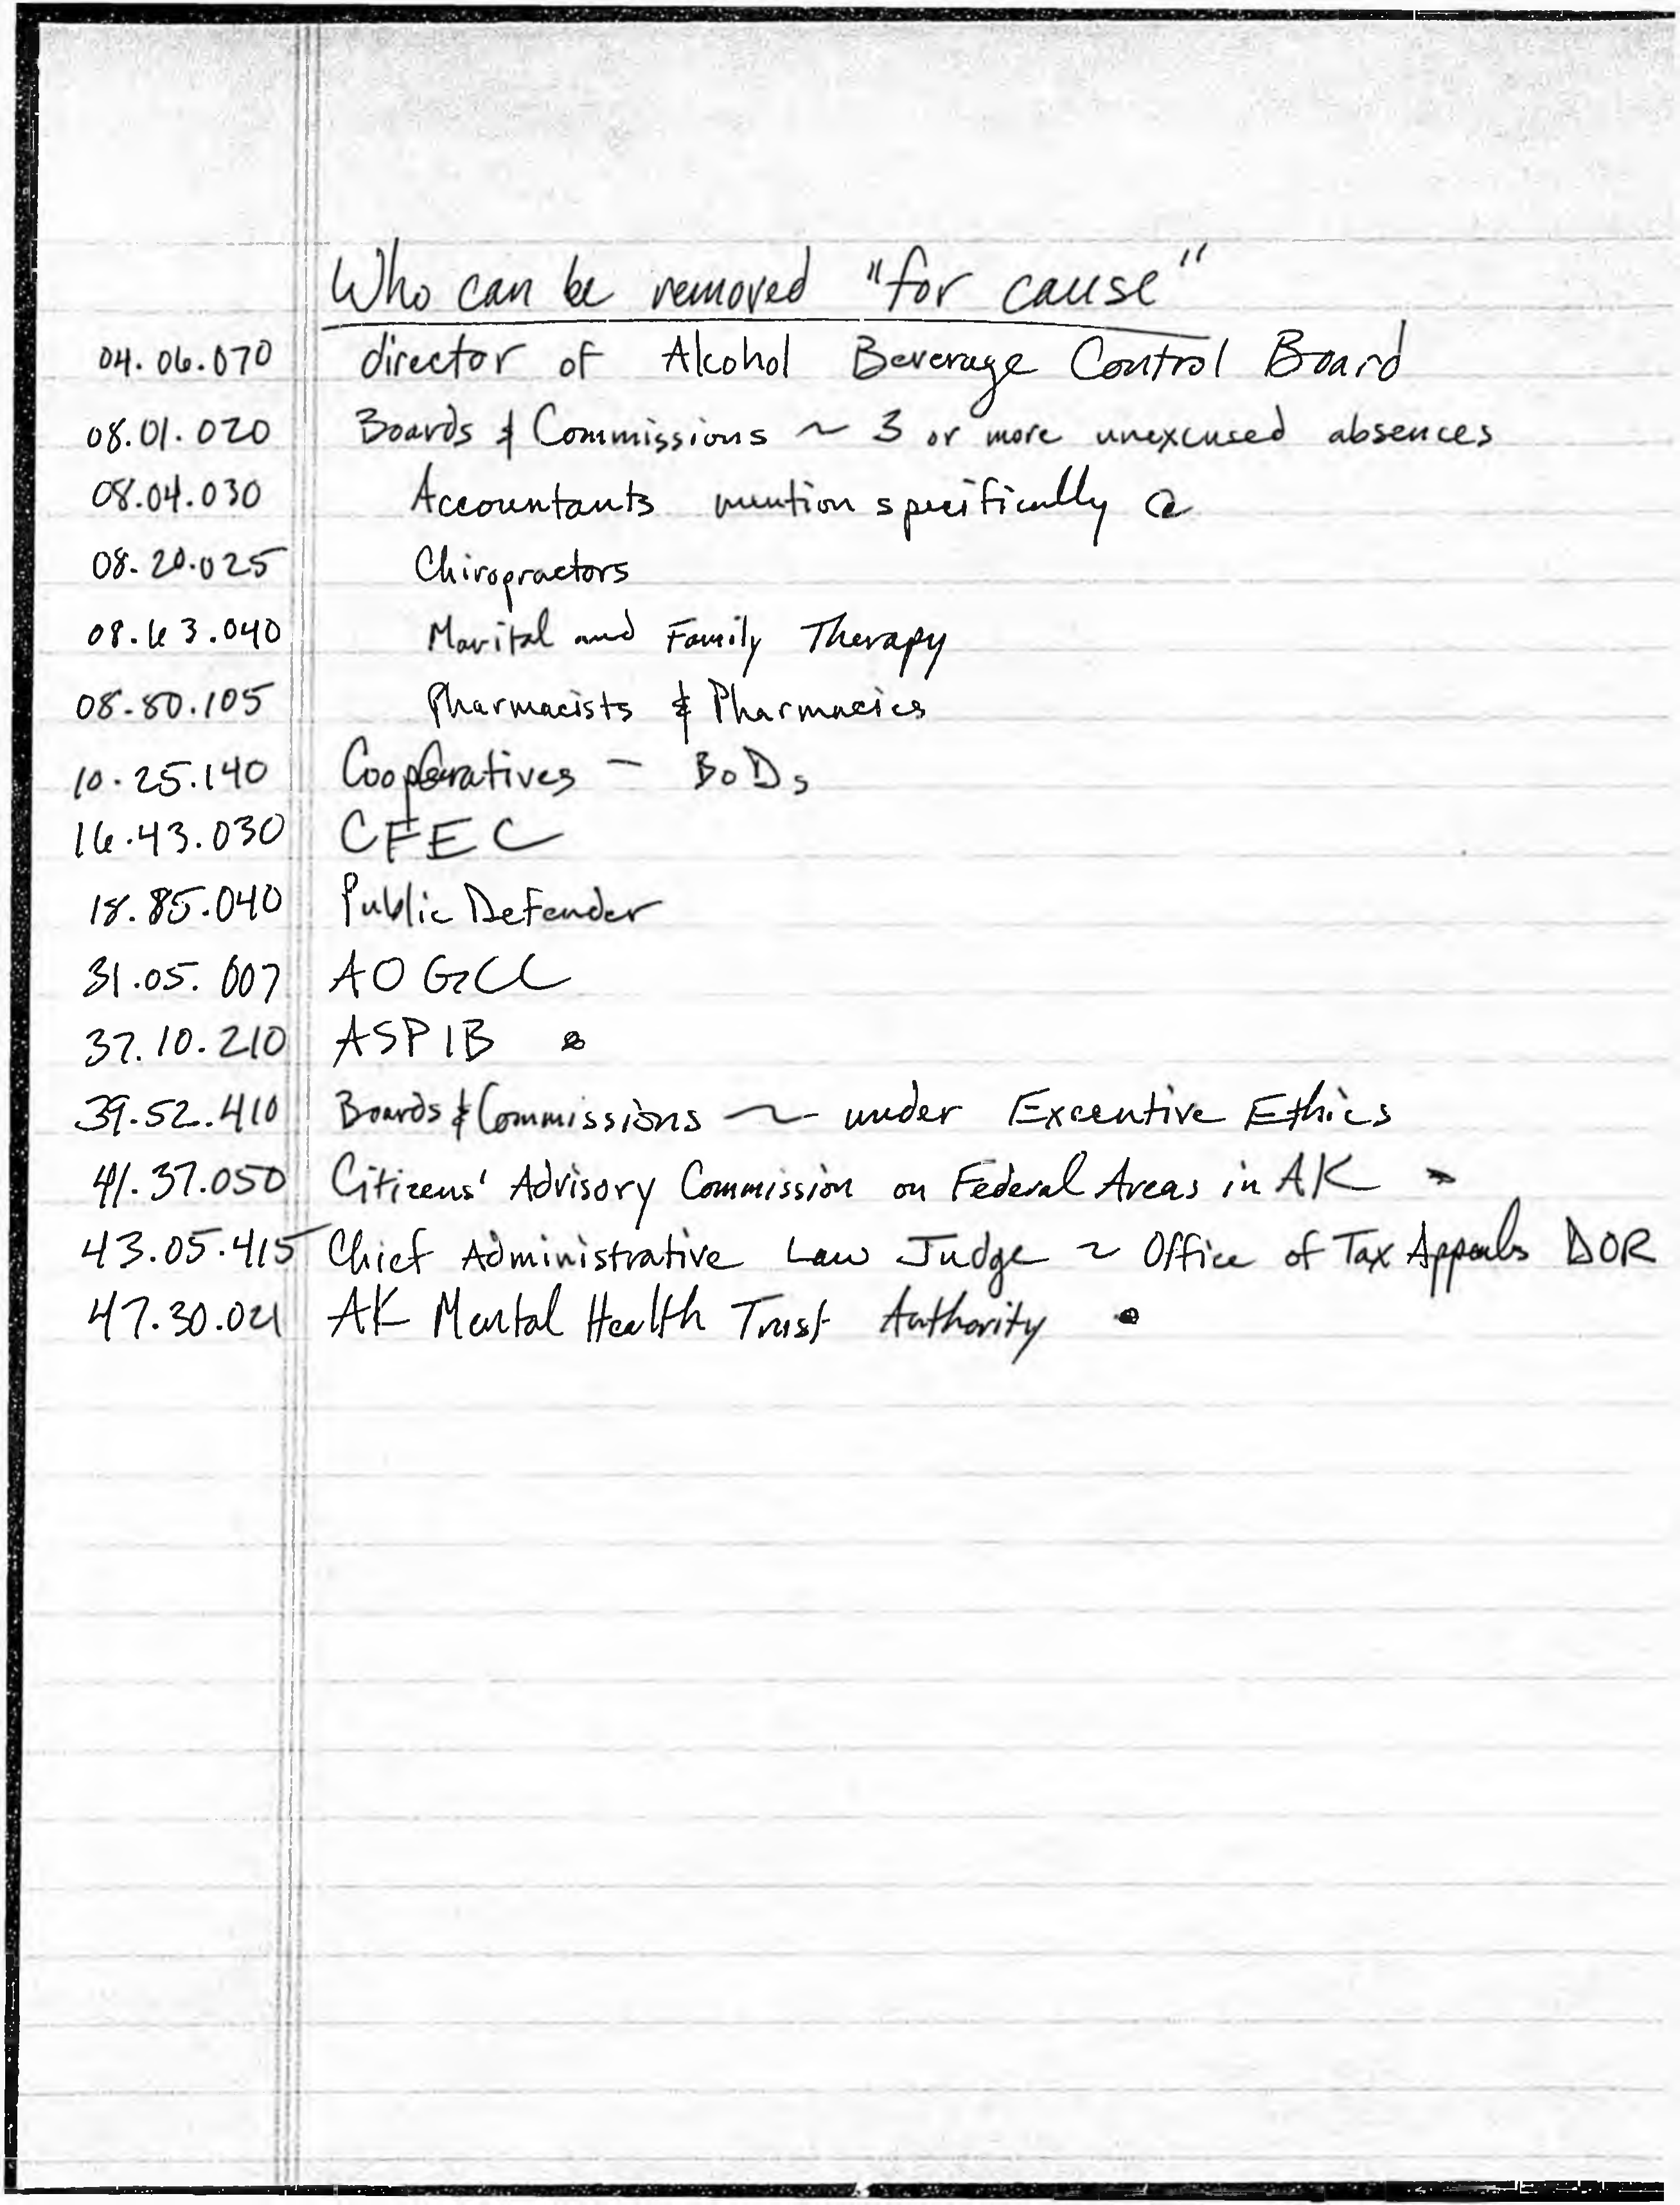 Who can be removed "for cause"
04.06.070 director of Alcohol Beverage Control Board
08.01.020 Boards & Commissions ~ 3 or more unexcused absences
08.04.030 Accountants mention specifically @
08.20.025 Chiropractors
08.63.040 Marital and Family Therapy
08.80.105 Pharmacists & Pharmacies
10.25.140 Cooperatives - BoDs
16.43.030 CFEC
18.85.040 Public Defender
31.05.007 AOGCC
37.10.210 ASPIB
39.52.410 Boards & Commissions ~ under Executive Ethics
41.37.050 Citizens' Advisory Commission on Federal Areas in AK
43.05.415 Chief Administrative Law Judge ~ Office of Tax Appeals DOR
47.30.021 AK Mental Health Trust Authority